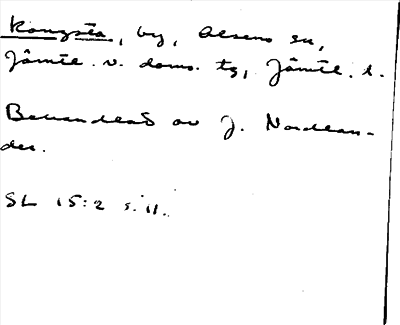 Kougsta, by, Alsens sn,
Jämtl. v. doms. tg, Jämtl. l.
Behandlad av J. Nordlan-
der.
SL 15:2 s. 11.